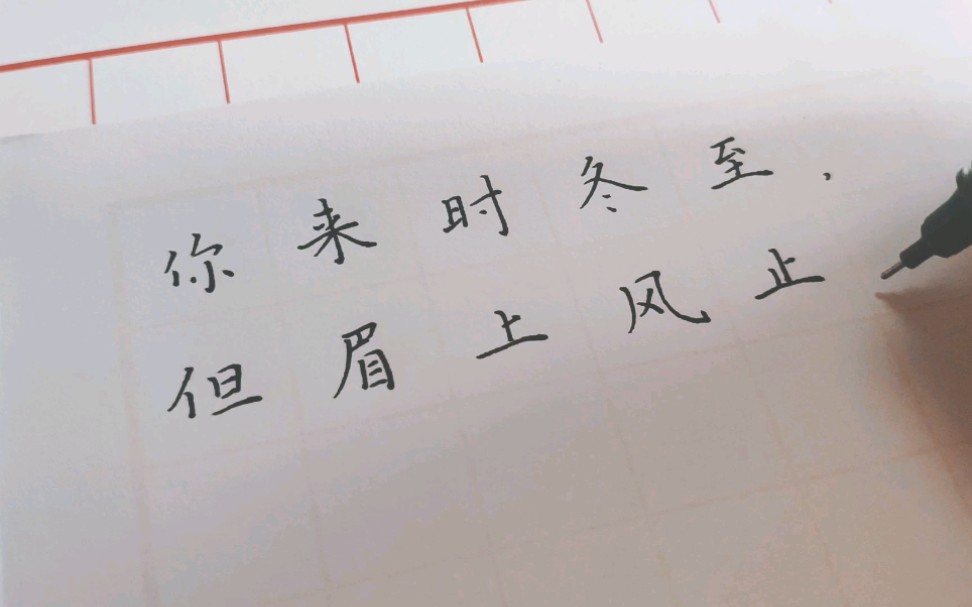 你来时冬至，
但眉上风止